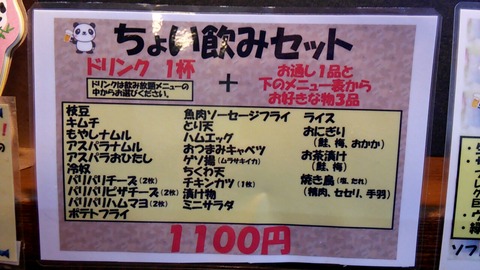 ちょい飲みセット
ドリンク 1杯
ドリンクは飲み放題メニューの
中からお選びください。
+
お通し1品と
下のメニュー表から
お好きな物3品
枝豆
キムチ
もやしナムル
アスパラナムル
アスパラおひたし
冷奴
パリパリチーズ(2枚)
パリパリピザチーズ(2枚)
パリパリハムマヨ(2枚)
ポテトフライ
魚肉ソーセージフライ
とり天
ハムエッグ
おつまみキャベツ
ゲソ揚(ムラサキイカ)
ちくわ天
チキンカツ(1枚)
漬け物
ミニサラダ
ライス
おにぎり
(鮭、梅、おかか)
お茶漬け
(鮭、梅)
焼き鳥(塩、たれ)
(精肉、セセリ、手羽)
1100円
ソフ